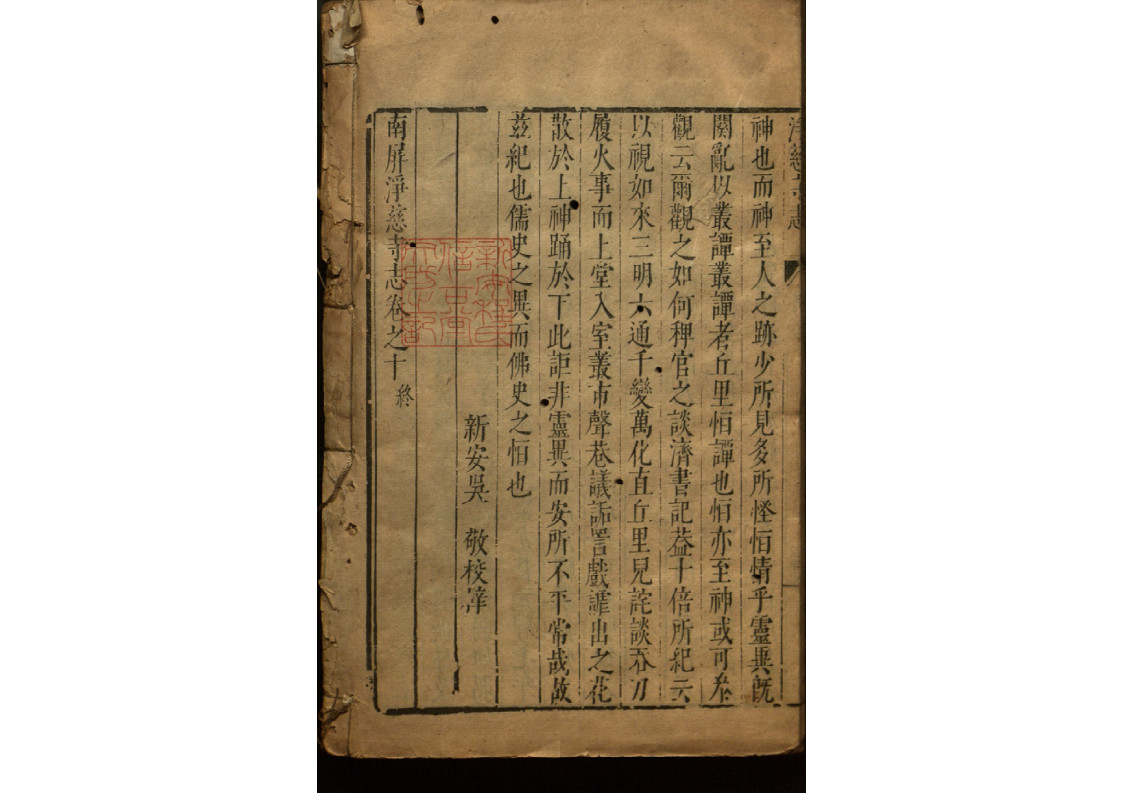 淨慈寺志
神也而神至人之跡少所見多所怪恒情乎靈異旣
闋亂以叢譚叢譚者丘里恒譚也恒亦至神或可叅
觀云爾觀之如何稗官之談濟書記葢十倍所紀云
以視如來三明六通千變萬化直丘里兒詫談吞刀
履火事而上堂入室叢市聲巷議詬詈戲謔出之花
散於上神踊於下此詎非靈異而安所不平常哉故
茲紀也儒史之異而佛史之恒也
新安吳 敬校
南屏淨慈寺志卷之十終